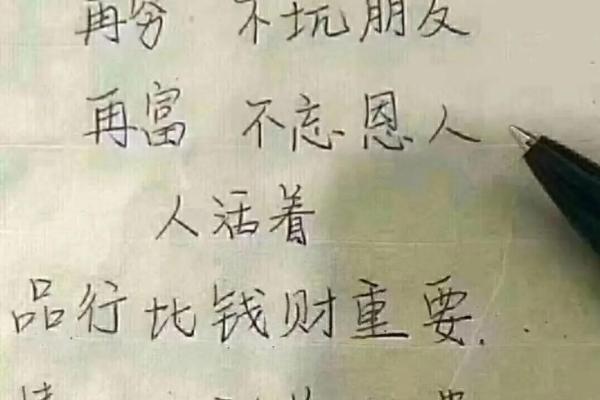 再穷 不坑朋友
再富 不忘恩人
人活着
品行比钱财重要...